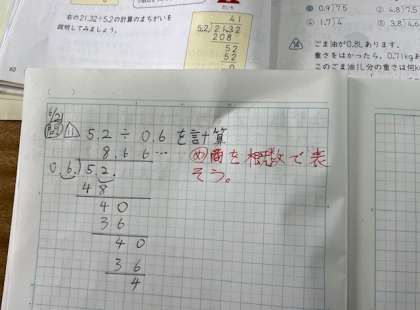 右の21.32÷5.2の計算のまちがいを
説明してみましょう。
60
41
5,2)21,32
208
52
52
0
0.9)7.5
② 4.8)7.5
④ 1.7)4
⑤ 3.8)4.6
ごま油が0.8Lあります。
重さをはかったら、0.71kg
このごま油1L分の重さは何k
( )
6/21
問 1 5.2÷0.6を計算
め 商を概数で表
そう。
8.66…
0.6)5.2.
48
40
36
40
36
4